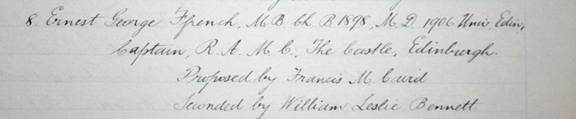 8. Ernest George Ffrench, M.B. Ch.B. 1898, M.D. 1906 Univ. Edin,
Captain, R.A.M.C., The Castle, Edinburgh.
Proposed by Francis M. Caird
Seconded by William Leslie Bennett